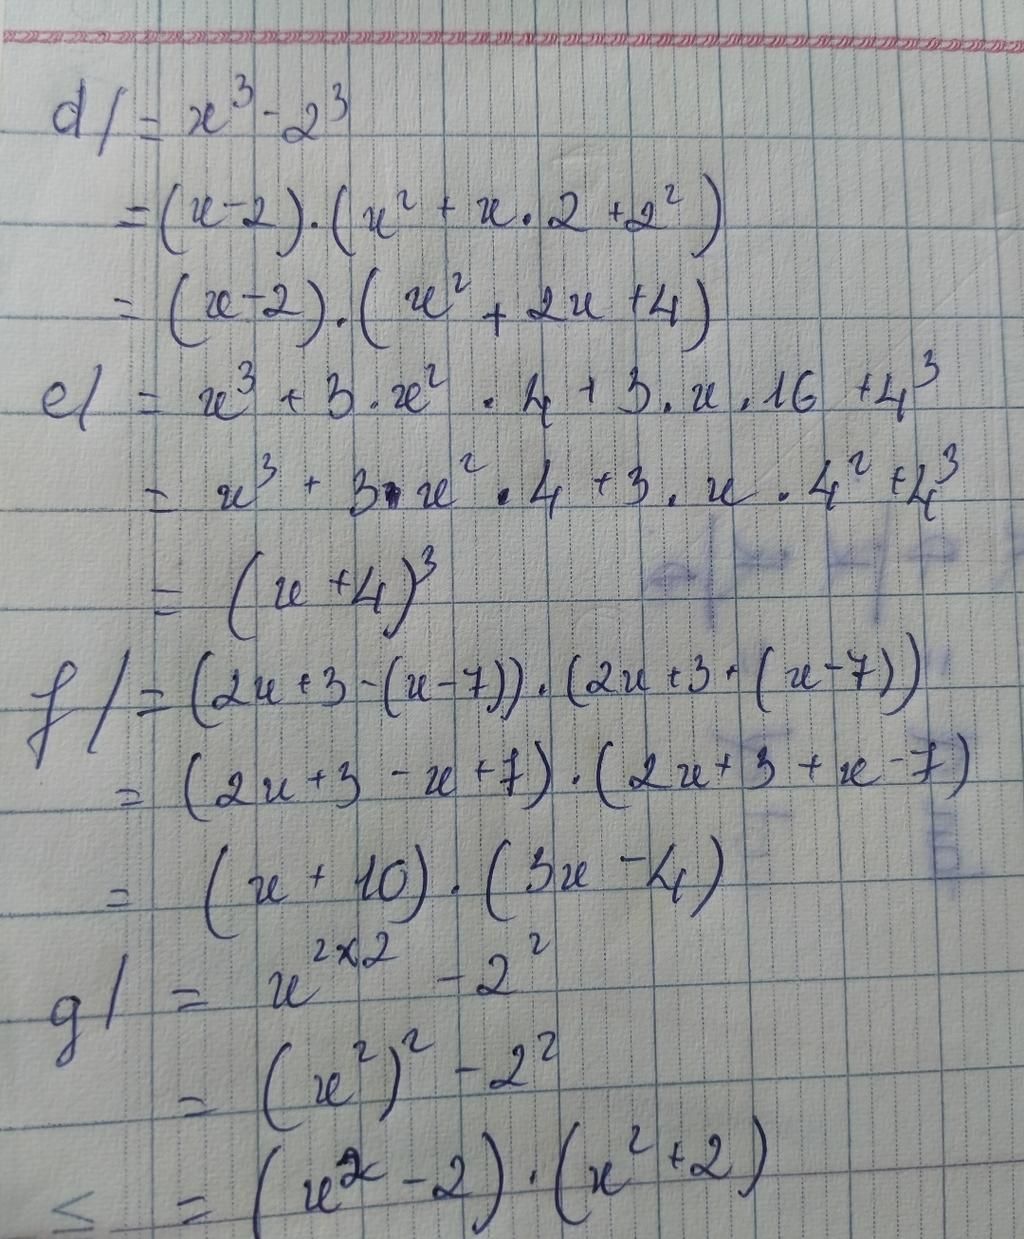 d/ = x³ - 2³
= (x-2).(x² + x.2 + 2²)
= (x-2).(x² + 2x + 4)
e/ = x³ + 3.x² . 4 + 3.x.16 + 4³
= x³ + 3.x² . 4 + 3.x.4² + 4³
= (x+4)³
f/ = (2x+3-(x-7)).(2x+3+(x-7))
= (2x+3-x+7).(2x+3+x-7)
= (x+10).(3x-4)
g/ = x²ˣ² - 2²
= (x²)² - 2²
≤ = (x² - 2).(x² + 2)